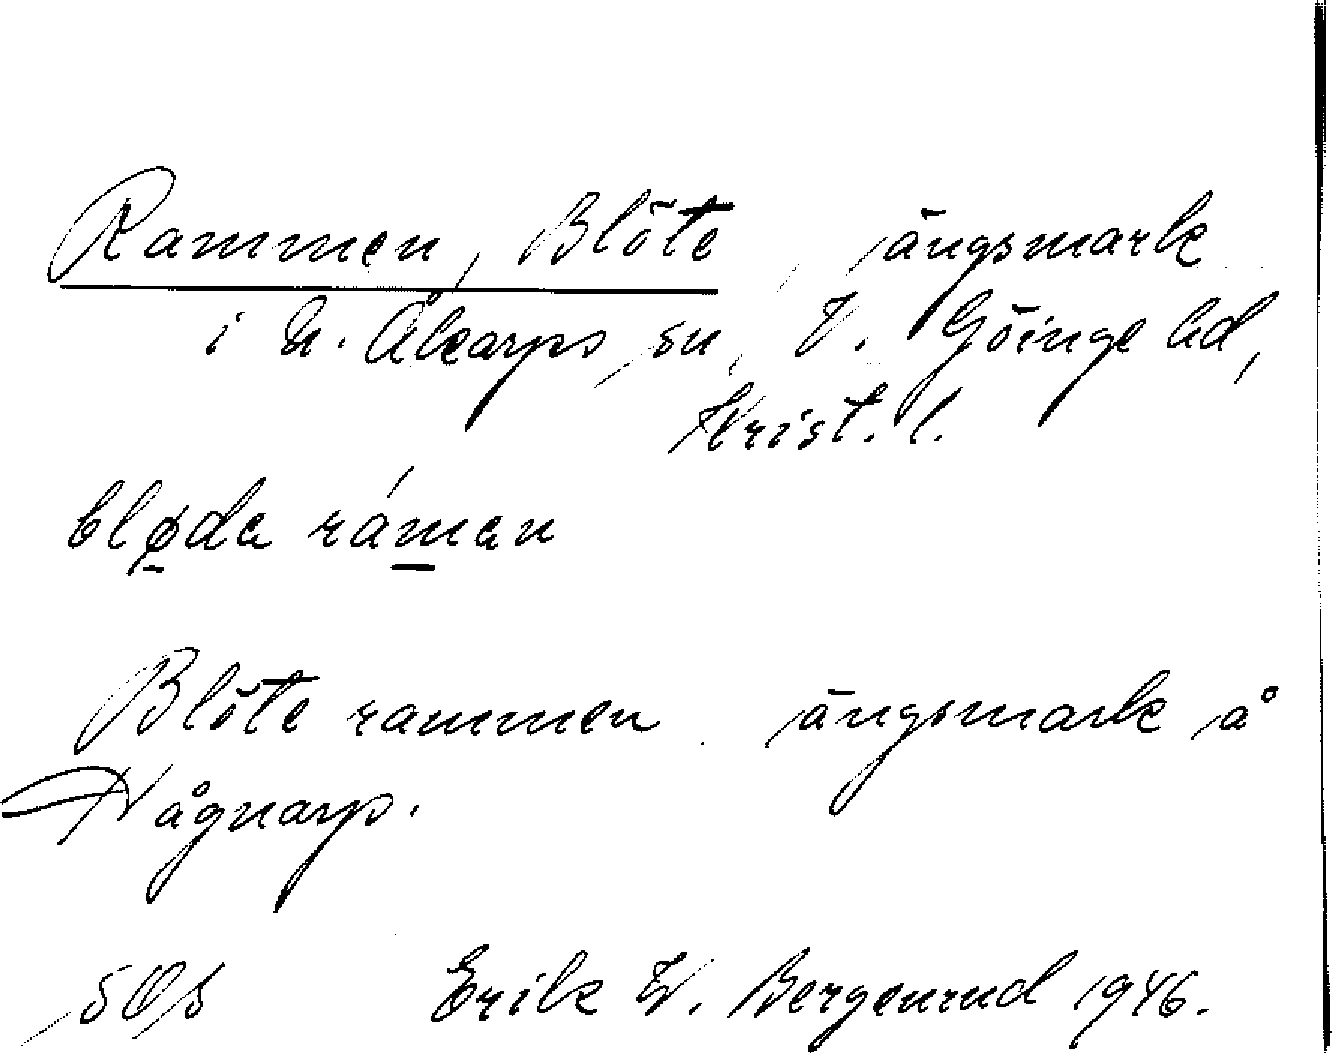 Rammen, Blöte, ängsmark
i N. Åkarps sn, V. Göinge hd,
Krist. l.
bløda ráman
Blöte rammen. ängsmark å
Hågnarp.
Erik W. Bergenrud 1946.